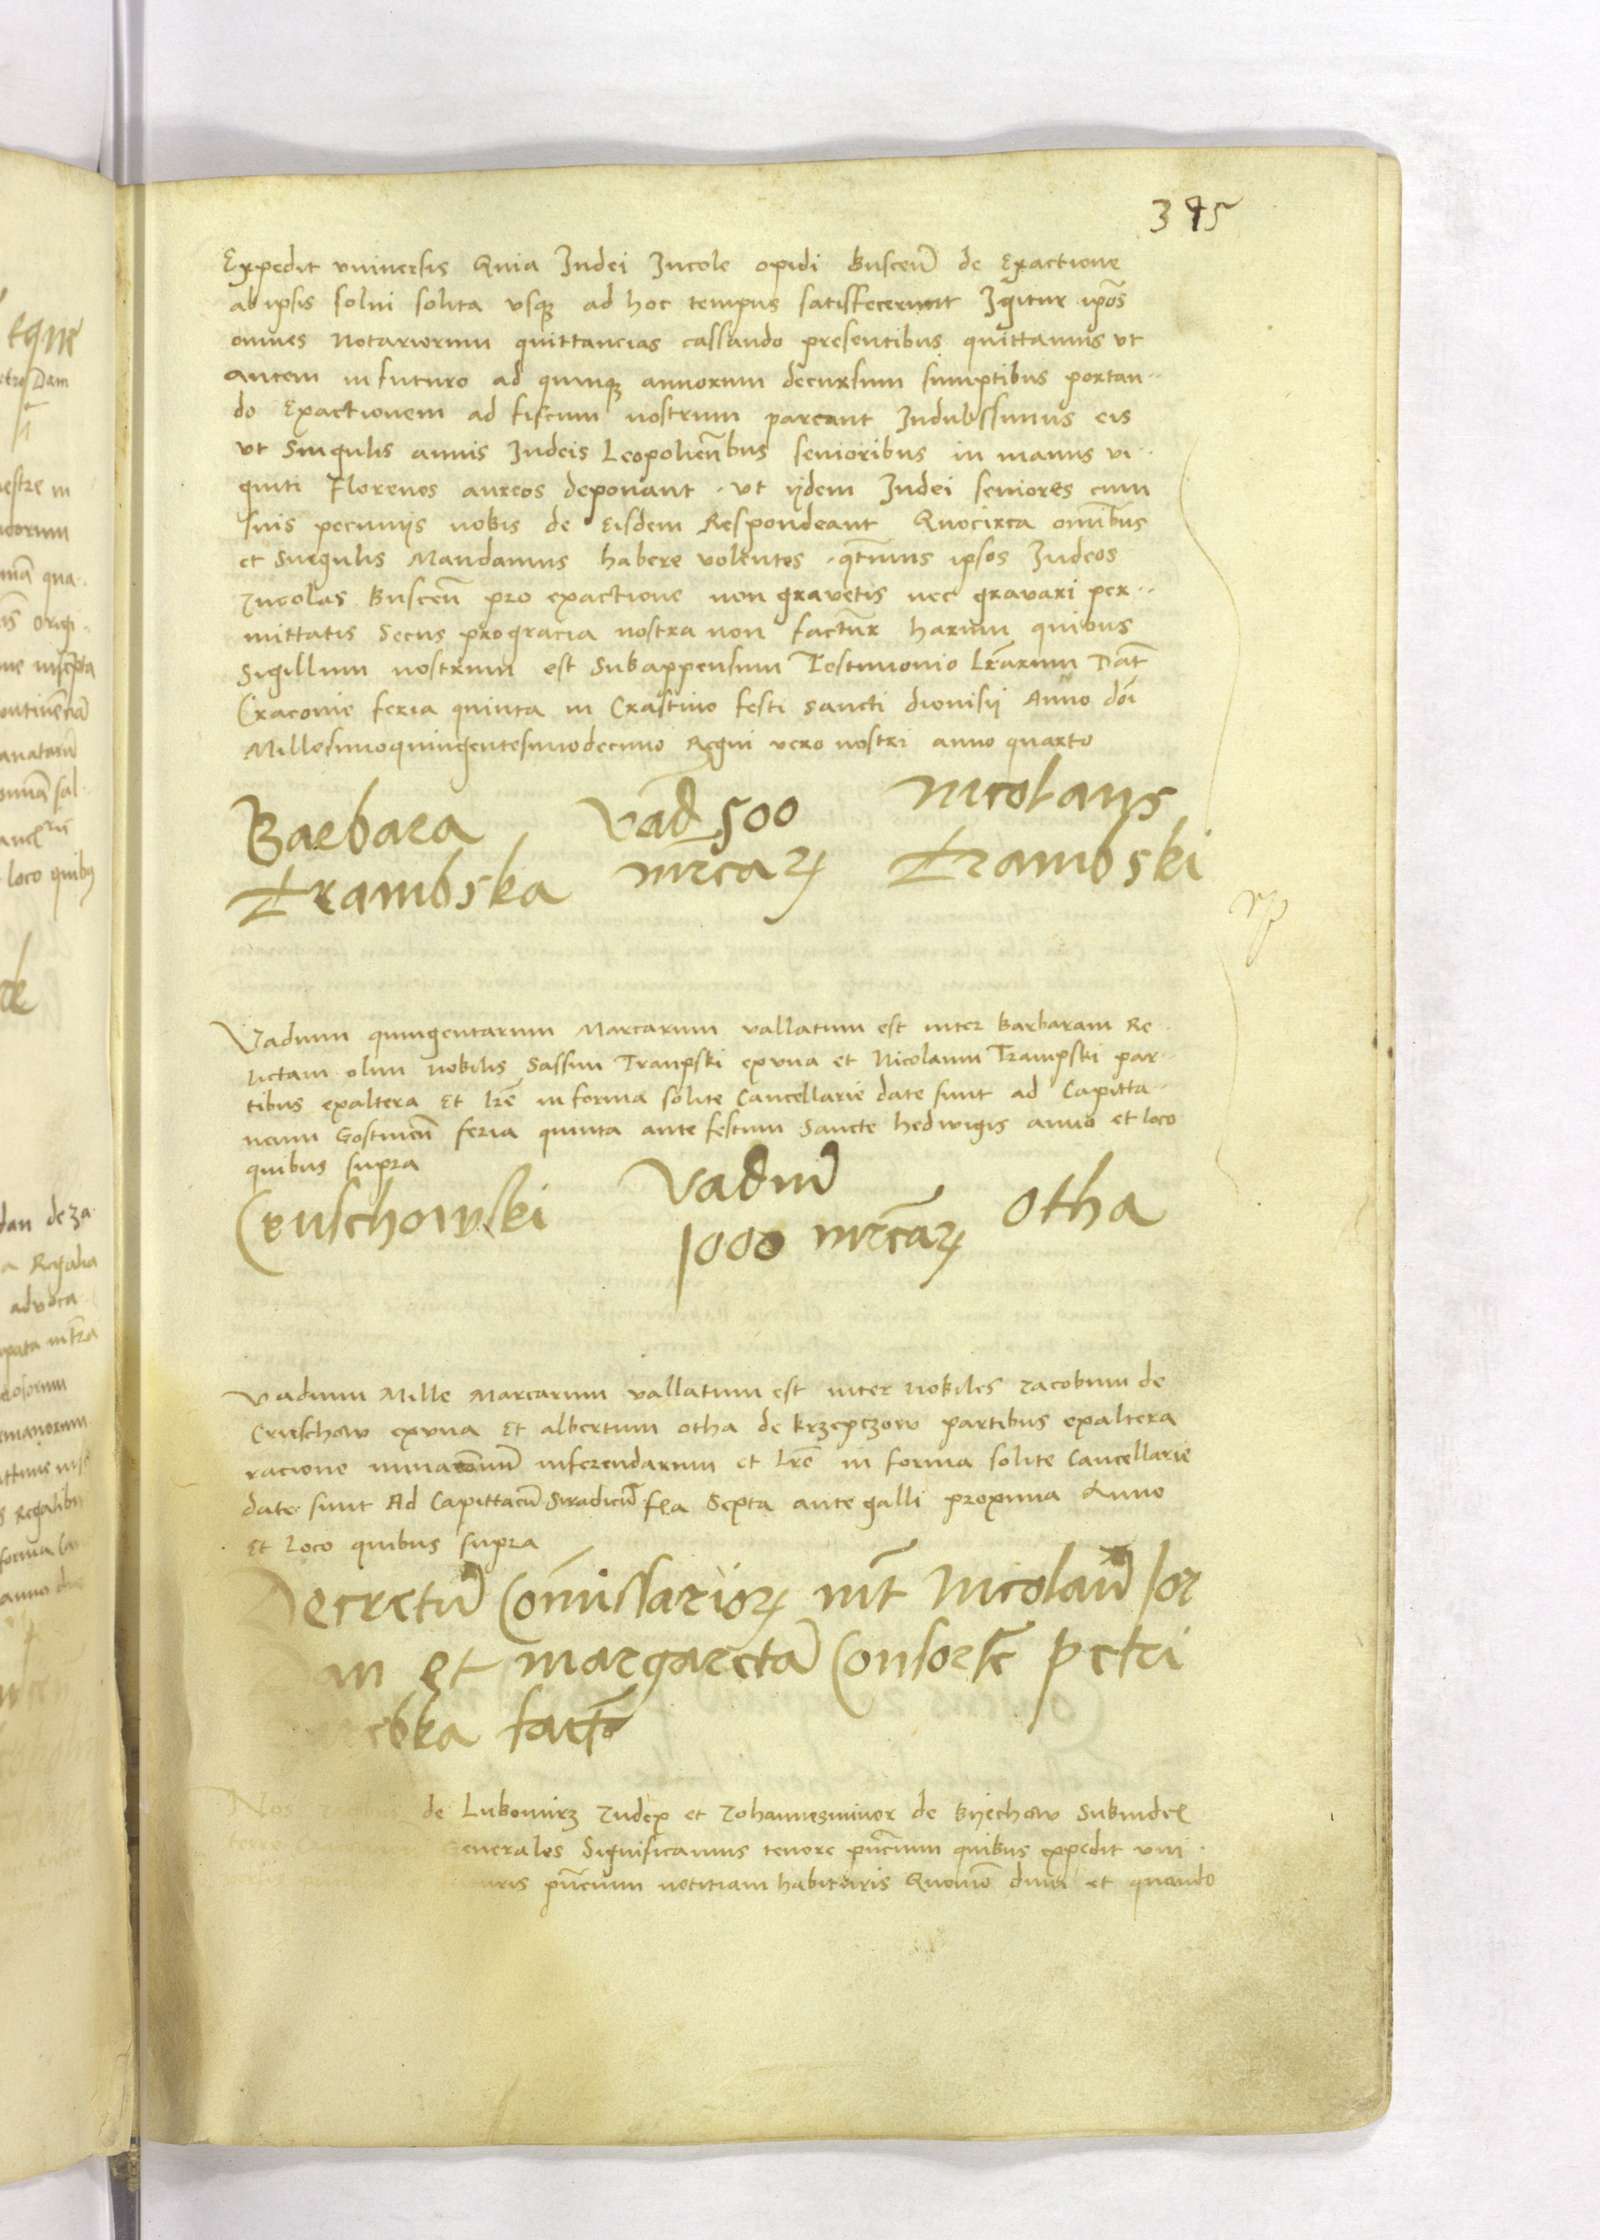 395
Expedit vniversis Quia Iudei Incole opidi Buscen̄ de Exactione
ab ipsis solui solita vsqꝫ ad hoc tempus satisfecerunt Igitur ip̄os
omnes Notariorum quittancias cassando presentibus quittamus vt
autem in futuro ad quinqꝫ annorum decursum sumptibus portan..
do Exactionem ad fiscum nostrum parcant Indulssimus eis
vt Singulis annis Iudeis Leopolien̄bus senioribus in manus vi..
ginti Florenos aureos deponant . vt ijdem Iudei seniores cum
suis pecunijs nobis de Eisdem Respondeant Quocirca omībus
et Singulis Mandamus habere volentes . qt̄inus ipsos Iudeos
Incolas Buscen̄ pro exactione non gravetis nec gravari per..
mittatis Secus pro gracia nostra non factur̄ harum quibus
Sigillum nostrum est Subappensum Testimonio Lr̄arum Dat̄
Cracouie feria quinta in Crastino festi sancti dionisii Anno dōi
Millesimoquingentesimodecimo Regni vero nostri anno quarto
Barbara Vad 500 Nicolaus
Trambska mr̄caꝝ Trambski
Vadium quingentarum Marcarum vallatum est inter Barbaram Re.
lictam olim nobilis Sassim Trampski ex vna et Nicolaum Trampski par..
tibus ex altera Et lr̄e in forma solite Cancellarie date sunt ad Capitta..
neum Gostinen̄ feria quinta ante festum Sancte hedwigis anno et loco
quibus supra
Cruschowski Vadiū Otha
1000 mr̄caꝝ
Vadium Mille Marcarum vallatum est inter Nobiles Iacobum de
Cruschow ex vna Et albertum otha de krzepczow partibus ex altera
racione minarum inferendarum et Lr̄e in forma solite Cancellarie
date sunt Ad Capittaneū Siradien̄ fr̄a Sexta ante galli proxima Anno
Et Loco quibus supra
Decretū Com̄issarioꝝ int̄ Nicolaū Jor
dan et margaretā Consortē petri
ebka factō
Nos de Lubomirz Iudex et Iohannes minor de Byechow Subiudex
terre Generales Significamus tenore pn̄cium quibus expedit vni.
uris pn̄cium notitiam habituris Quomō dum et quando